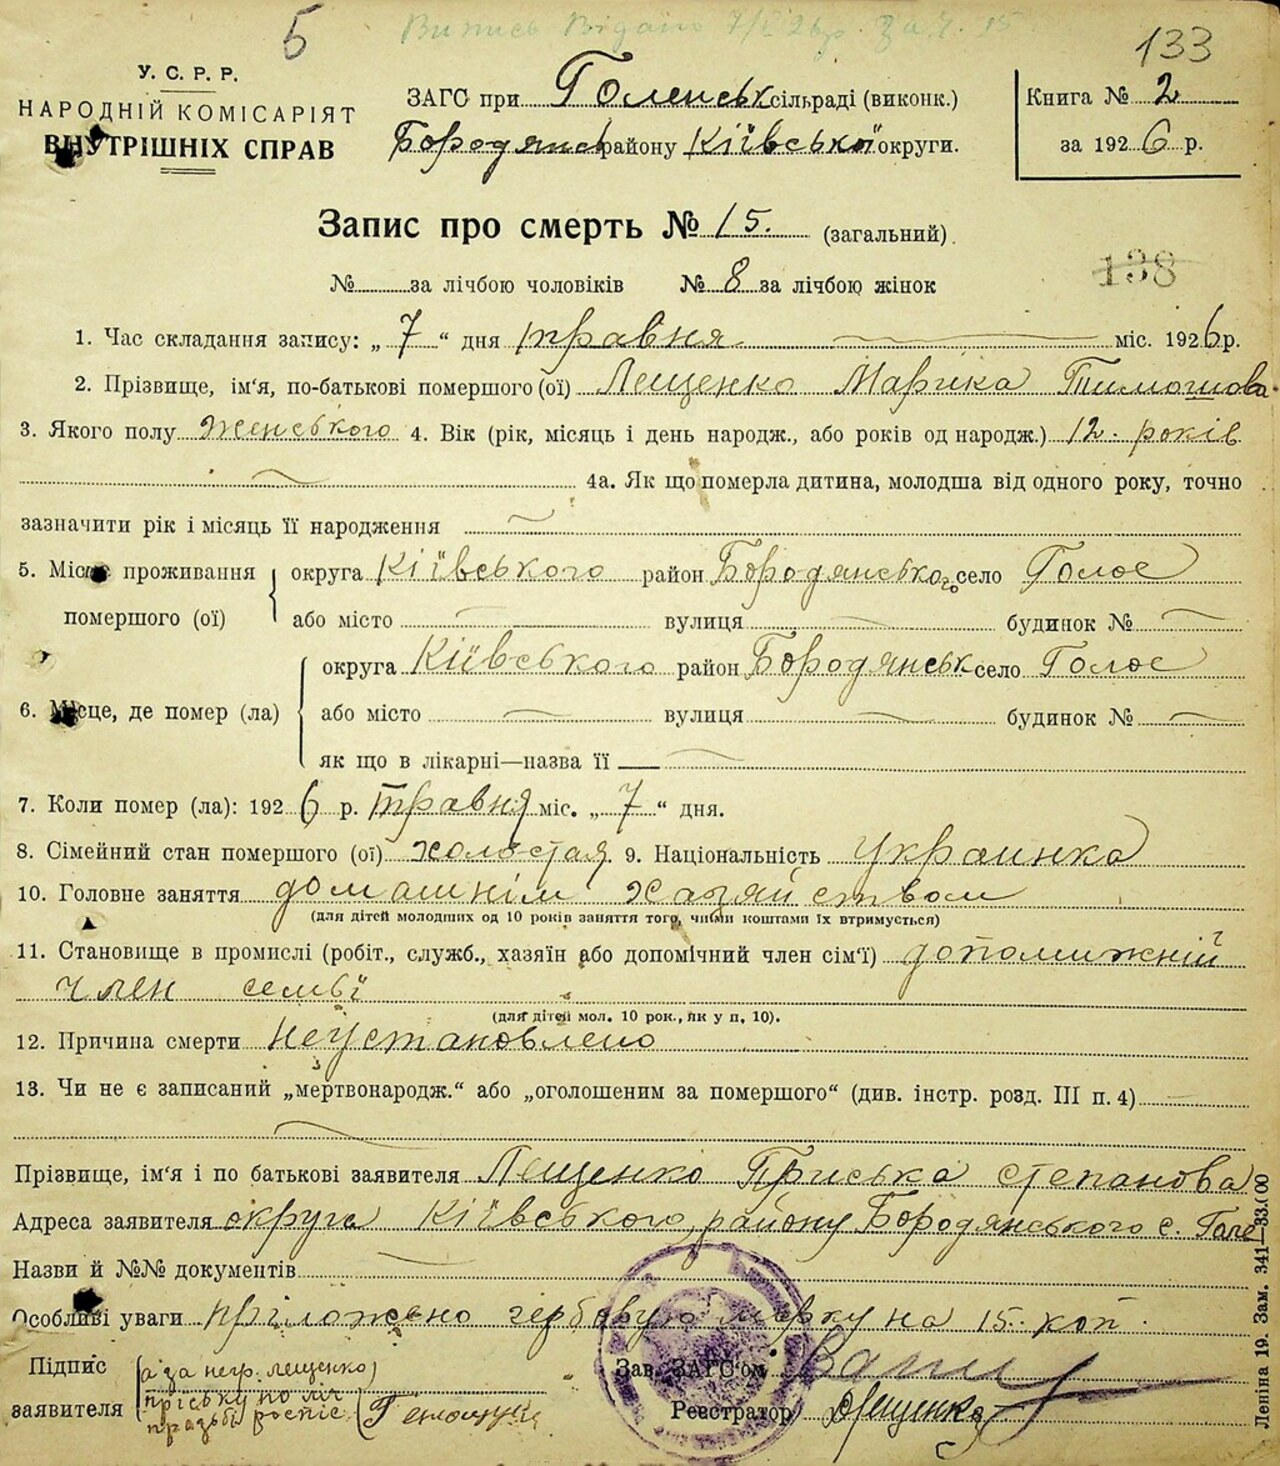 Випись Видано 7/V 26 р. За №. 15
5
133
У. С. Р. Р.
НАРОДНІЙ КОМІСАРІЯТ
ВНУТРІШНІХ СПРАВ
ЗАГС при Голенськ сільраді (виконк.)
Бородянськ району Київської округи.
Книга № 2
за 1926 р.
Запис про смерть № 15. (загальний).
138
№ за лічбою чоловіків № 8 за лічбою жінок
1. Час складання запису: „ 7 “ дня травня міс. 1926 р.
2. Прізвище, ім'я, по-батькові помершого (ої) Лещенко Марика Тимошова
3. Якого полу Женського 4. Вік (рік, місяць і день народж., або років од народж.) 12. років
4а. Як що померла дитина, молодша від одного року, точно
зазначити рік і місяць її народження
5. Місце проживання помершого (ої) округа Київського район Бородянського село Голое
або місто вулиця будинок №
6. Місце, де помер (ла) округа Київського район Бородянськ село Голое
або місто вулиця будинок №
як що в лікарні—назва її
7. Коли помер (ла): 1926 р. травня міс. „ 7 “ дня.
8. Сімейний стан помершого (ої) холостая. 9. Національність украинка
10. Головне заняття домашнім хазяйством
(для дітей молодших од 10 років заняття того, чиїми коштами їх втримується)
11. Становище в промислі (робіт., служб., хазяїн або допомічний член сім'ї) допомижній
член семьї
(для дітей мол. 10 рок., як у п. 10).
12. Причина смерти Неустановлено
13. Чи не є записаний „мертвонародж.“ або „оголошеним за помершого“ (див. інстр. розд. III п. 4)
Прізвище, ім'я і по батькові заявителя Лещенко Приська степанова
Адреса заявителя округа Київського, району Бородянського с. Гале
Назви й №№ документів
Особливі уваги приложено гербовую марку на 15. коп.
Підпис заявителя а за негр. лещенко
приську по ліч
прозьбі роспіс
Зав. ЗАГС'ом
Реєстратор Лещенко
Леніна 19. Зам. 341—33.000